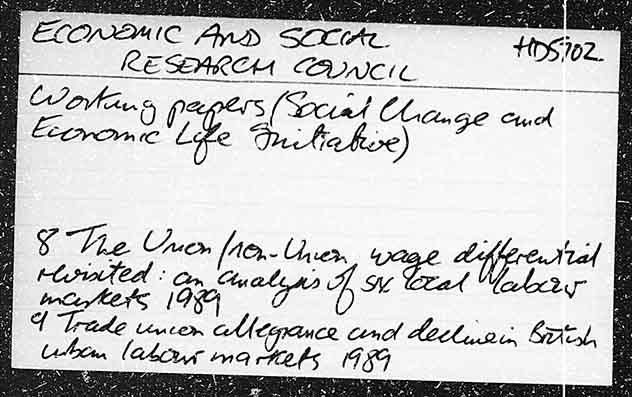 ECONOMIC AND SOCIAL HD5702
RESEARCH COUNCIL
Working papers (Social Change and
Economic Life Initiative)
8 The Union/non-Union wage differential
revisited: an analysis of six local labour
markets 1989
9 Trade union allegiance and decline in British
urban labour markets 1989